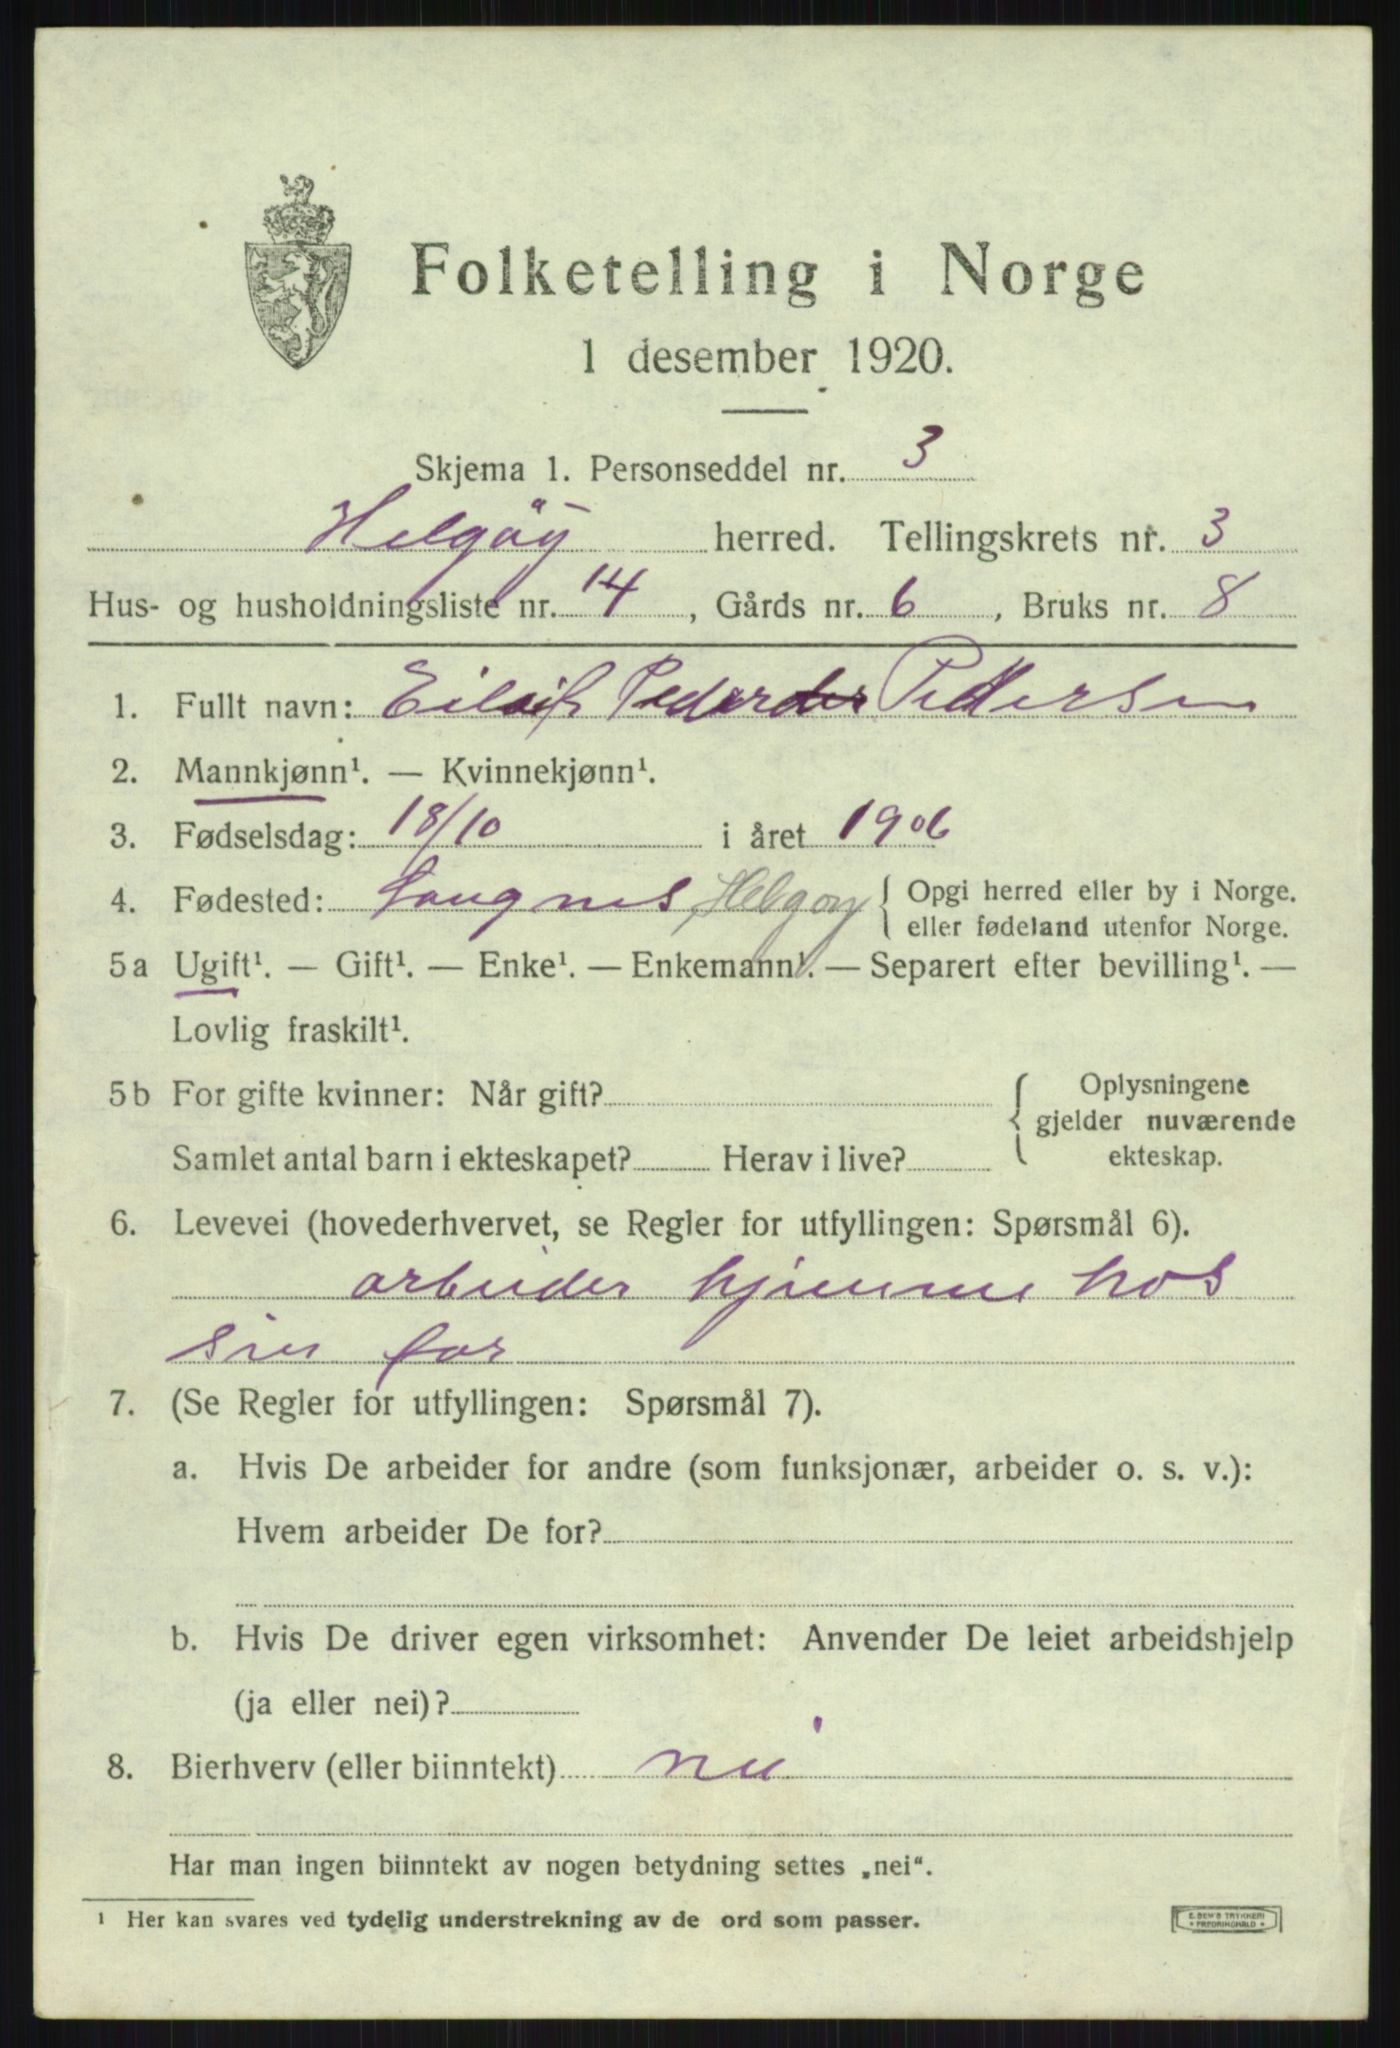 Folketelling i Norge
1 desember 1920.
Skjema 1. Personseddel nr. 3
Helgøy herred. Tellingskrets nr. 3
Hus- og husholdningsliste nr. 14, Gårds nr. 6, Bruks nr. 8
1. Fullt navn: Eileif Peder Pedersen
2. Mannkjønn¹. — Kvinnekjønn¹.
3. Fødselsdag: 18/10 i året 1906
4. Fødested: Laugnes Helgøy { Opgi herred eller by i Norge.
eller fødeland utenfor Norge.
5a Ugift¹. — Gift¹. — Enke¹. — Enkemann¹. — Separert efter bevilling¹. —
Lovlig fraskilt¹.
5b For gifte kvinner: Når gift?
Samlet antal barn i ekteskapet? Herav i live?
{ Oplysningene
gjelder nuværende
ekteskap.
6. Levevei (hovederhvervet, se Regler for utfyllingen: Spørsmål 6).
arbeider hjemme hos
sin far
7. (Se Regler for utfyllingen: Spørsmål 7).
a. Hvis De arbeider for andre (som funksjonær, arbeider o. s. v.):
Hvem arbeider De for?
b. Hvis De driver egen virksomhet: Anvender De leiet arbeidshjelp
(ja eller nei)?
8. Bierhverv (eller biinntekt) nei
Har man ingen biinntekt av nogen betydning settes „nei“.
¹ Her kan svares ved tydelig understrekning av de ord som passer.
E. SEM'S TRYKKERI
FREDRIKSHALD